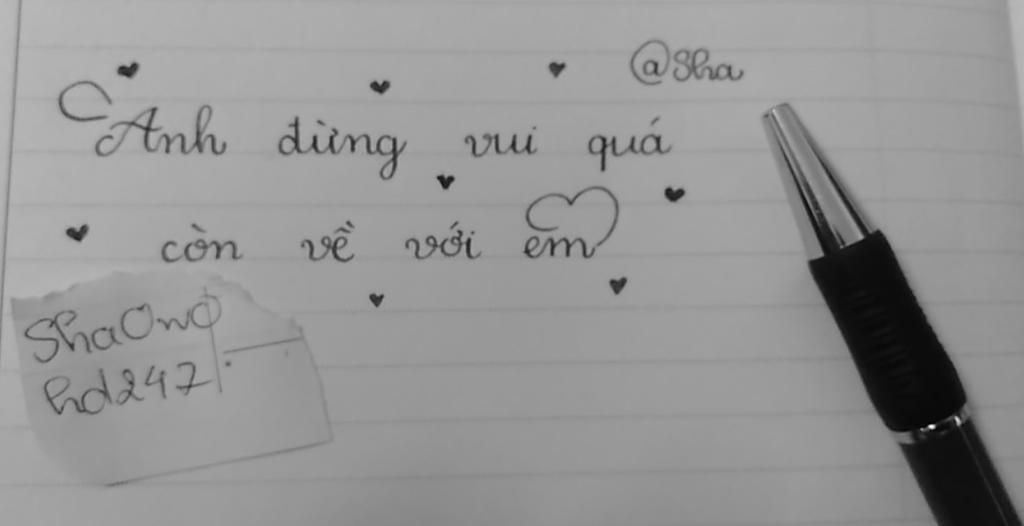 @Sha
Anh đừng vui quá
còn về với em
ShaOnO
hd247